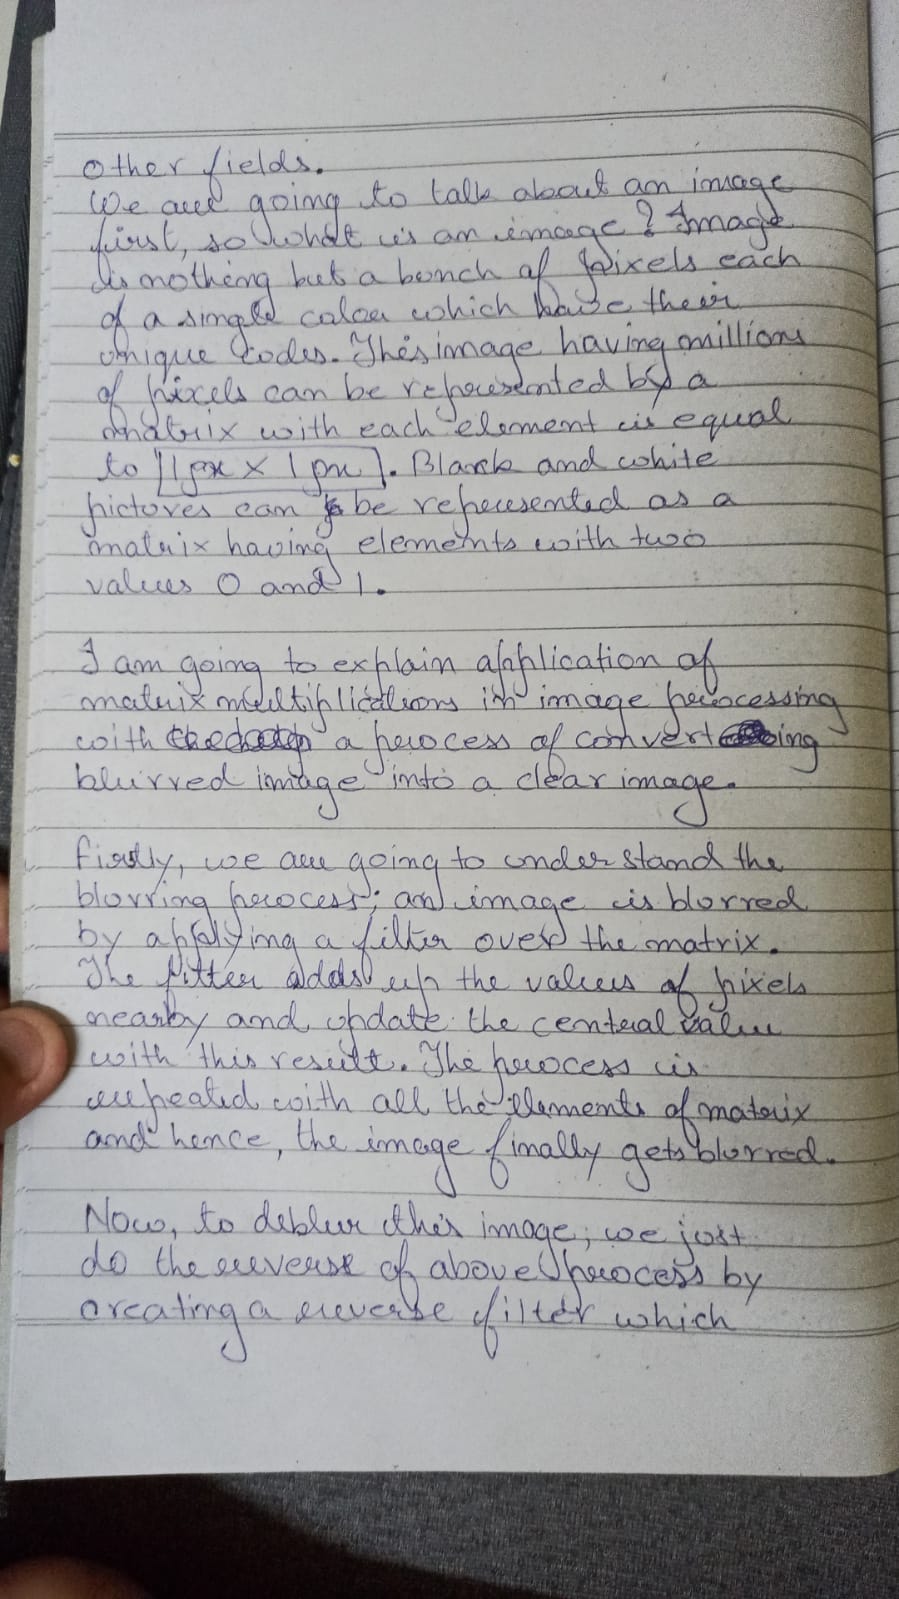 Other fields.
We are going to talk about an image
first, so what is an image? Image
is nothing but a bunch of pixels each
of a single color which have their
unique codes. This image having millions
of pixels can be represented by a
matrix with each element is equal
to [1px × 1px]. Black and white
pictures can be represented as a
matrix having elements with two
values 0 and 1.
I am going to explain application of
matrix multiplications in image processing
with a process of converting
blurred image into a clear image.
Firstly, we are going to understand the
blurring process; an image is blurred
by applying a filter over the matrix.
The filter adds up the values of pixels
nearby and update the central value
with this result. The process is
repeated with all the elements of matrix
and hence, the image finally gets blurred.
Now, to deblur this image, we just
do the reverse of above process by
creating a reverse filter which